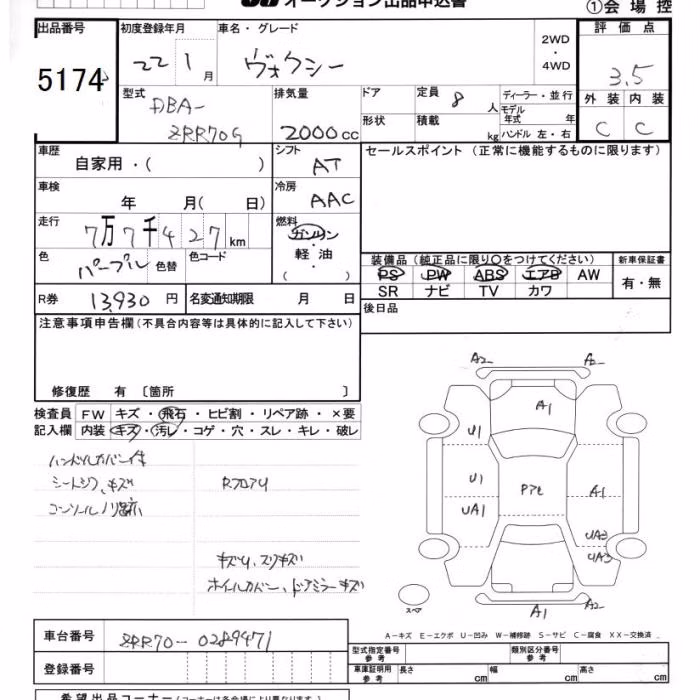 オークション出品申込書
①会場控
出品番号 初度登録年月 車名・グレード 評価点
5174 22 1月 ヴォクシー 2WD・4WD 3.5
型式 排気量 ドア 定員 8人 ディーラー・並行 外装 内装
DBA-ZRR70G 2000cc 形状 積載 kg モデル年式 年 C C
ハンドル 左・右
車歴 シフト セールスポイント (正常に機能するものに限ります)
自家用・( ) AT
車検 冷房
年 月( 日) AAC
走行 燃料
7万7千427km ガソリン・軽油
( )
色 パープル 色替 色コード
装備品(純正品に限り○をつけてください) 新車保証書
PS PW ABS エアB AW 有・無
SR ナビ TV カワ
R券 13,930円 名変通知期限 月 日
後日品
注意事項申告欄(不具合内容等は具体的に記入して下さい)
修復歴 有 〔箇所 〕
検査員 FW キズ・飛石・ヒビ割・リペア跡・×要
記入欄 内装 キズ・汚レ・コゲ・穴・スレ・キレ・破レ
ハンドルカバー付
シートシワ、キズ
コンソールノリ跡
キズU、スリキズ
ホイルカバー、ドアミラーキズ
A2 A2
A1
U1
U1 A1
UA1 UA2
UA3
スペア
A1 A2
A-キズ E-エクボ U-凹み W-補修跡 S-サビ C-腐食 XX-交換済
車台番号 ZRR70-0289471
型式指定番号 参考 類別区分番号 参考
登録番号
車庫証明用 参考 長さ cm 幅 cm 高さ cm
希望出品コーナー(コーナーは各会場により異なります)